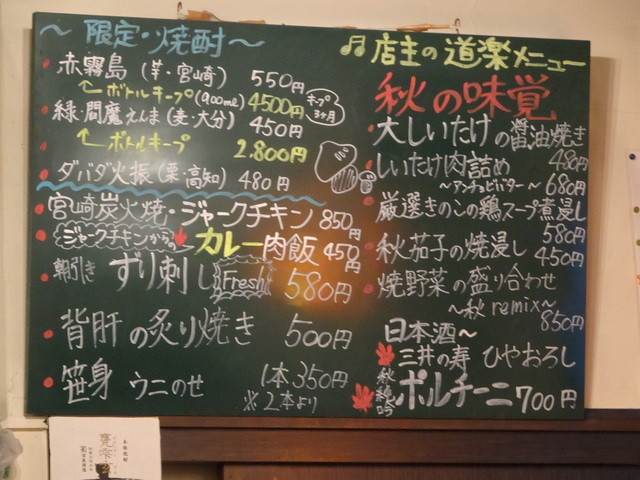 ～限定・焼酎～
赤霧島(芋・宮崎) 550円
ボトルキープ(900ml) 4500円
キープ3ヶ月
緑・閻魔えんま(麦・大分) 450円
ボトルキープ 2.800円
ダバダ火振(栗・高知) 480円
宮崎炭火焼・ジャークチキン 850円
ジャークチキンからの カレー肉飯 450円
朝引き ずり刺し Fresh 580円
背肝の炙り焼き 500円
笹身 ウニのせ 1本350円
※2本より
♫店主の道楽メニュー
秋の味覚
大しいたけの醤油焼き 480円
しいたけ肉詰め
～アンチョビバター～ 680円
厳選きのこの鶏スープ煮浸し 580円
秋茄子の焼浸し 450円
焼野菜の盛り合わせ
～秋remix～ 850円
日本酒～
三井の寿 ひやおろし
秋純吟 ポルチーニ 700円